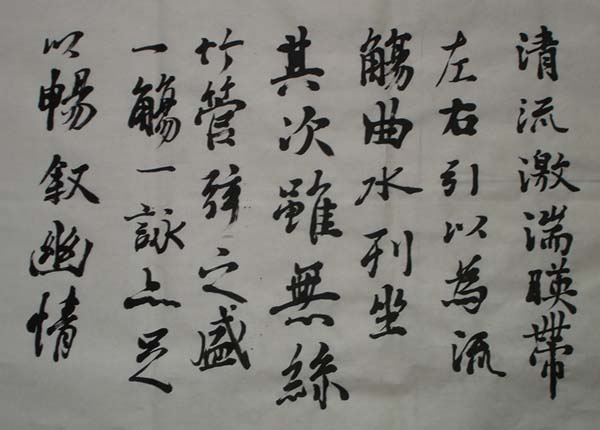 清流激湍暎帶
左右引以為流
觴曲水列坐
其次雖無絲
竹管弦之盛
一觴一詠亦足
以暢敘幽情